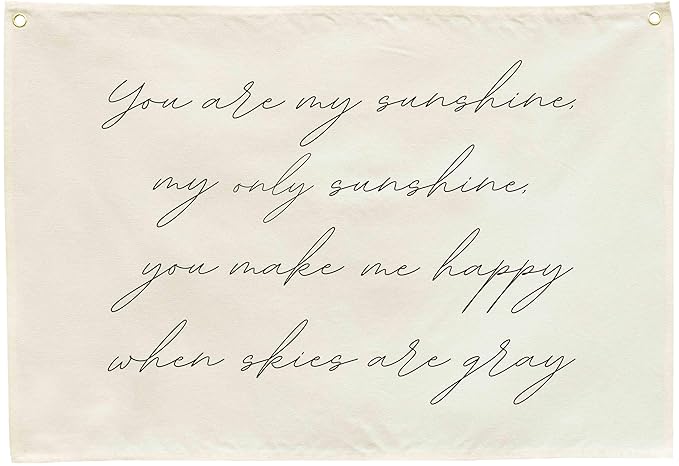 You are my sunshine,
my only sunshine,
you make me happy
when skies are gray